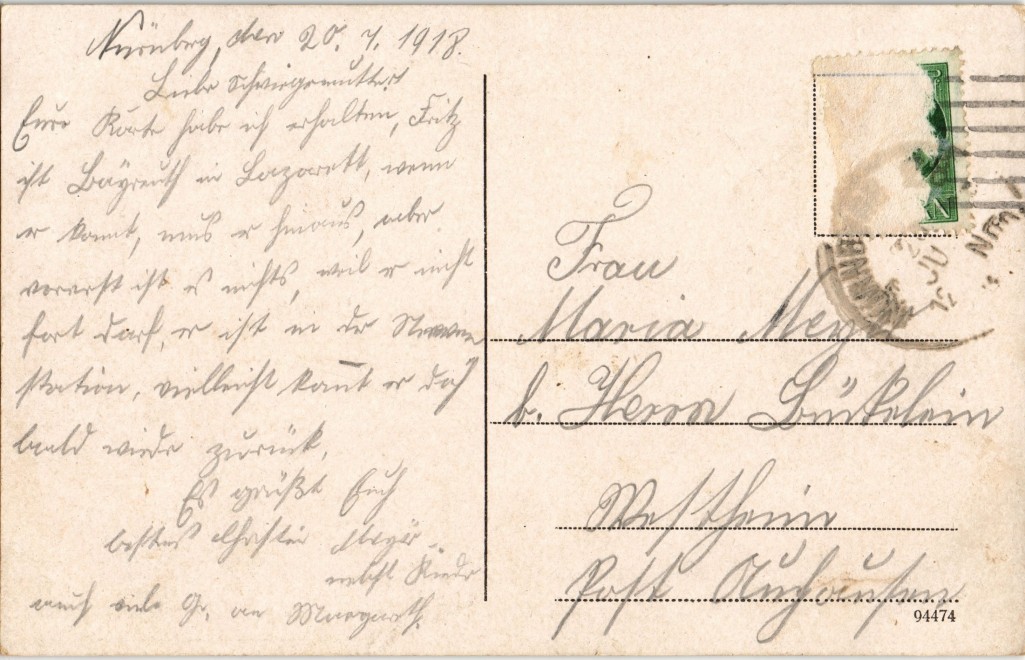 Nürnberg, den 20. 7. 1918.
Liebe Schwiegermutter!
Eure Karte habe ich erhalten, Fritz
ist Bayreuth in Lazarett, wenn
er kommt, mus er hinaus, aber
vorerst ist es nichts, weil er nicht
fort darf, er ist in der Nerven
station, vielleicht kom̅t er doch
bald wieder zurück.
Es grüßt Euch
bestens Meyer
nebst Kinder
auch viele Gr. an Margareth.
Frau
Maria Meyer
b. Herrn Bückelein
Westheim
Post Auhausen
94474